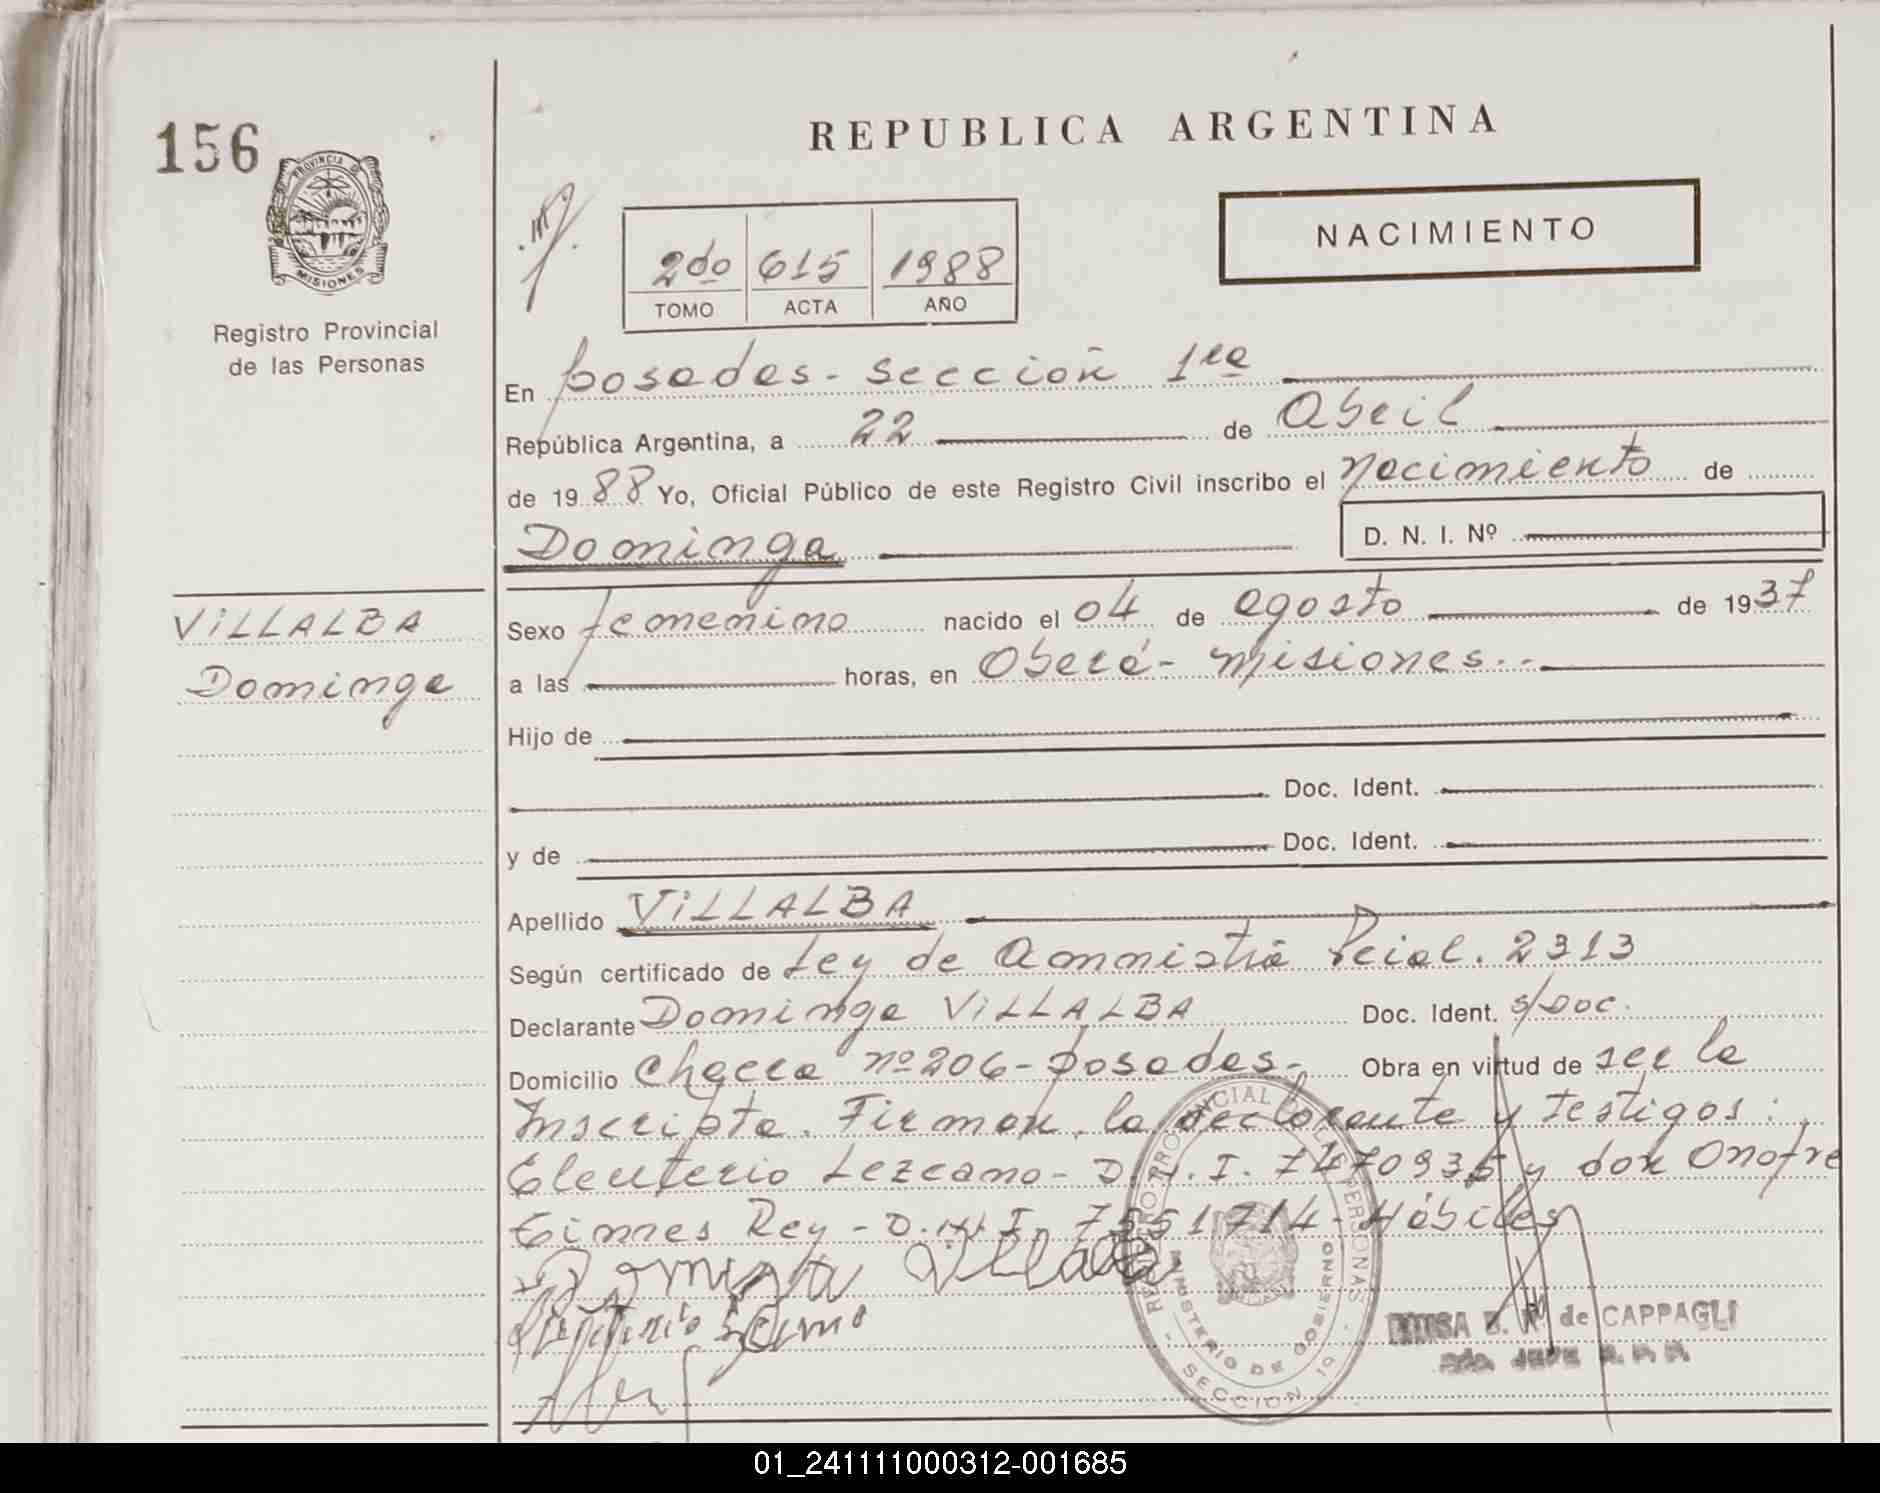 156
PROVINCIA DE
MISIONES
Registro Provincial
de las Personas
REPUBLICA ARGENTINA
NACIMIENTO
2do 615 1988
TOMO ACTA AÑO
En Posadas - Sección 1ra
República Argentina, a 22 de Abril
de 1988 Yo, Oficial Público de este Registro Civil inscribo el Nacimiento de
Dominga D. N. I. Nº
VILLALBA
Dominga
Sexo femenino nacido el 04 de agosto de 1937
a las horas, en Oberá - Misiones.-
Hijo de
Doc. Ident.
y de Doc. Ident.
Apellido VILLALBA
Según certificado de Ley de Amnistía Pcial. 2313
Declarante Dominga VILLALBA Doc. Ident. s/Doc.
Domicilio Chacra nº 206 - Posadas - Obra en virtud de ser la
Inscripta. Firman, la declarante y testigos:
Eleuterio Lezcano - D.N.I. 7470935 y don Onofre
Gimes Rey - D.N.I. 7551714 - Hábiles
Dominga Villalba
REGISTRO PROVINCIAL DE LAS PERSONAS
MINISTERIO DE GOBIERNO
- SECCION 1º -
de CAPPAGLI
JEFE R. P. P.
01_241111000312-001685